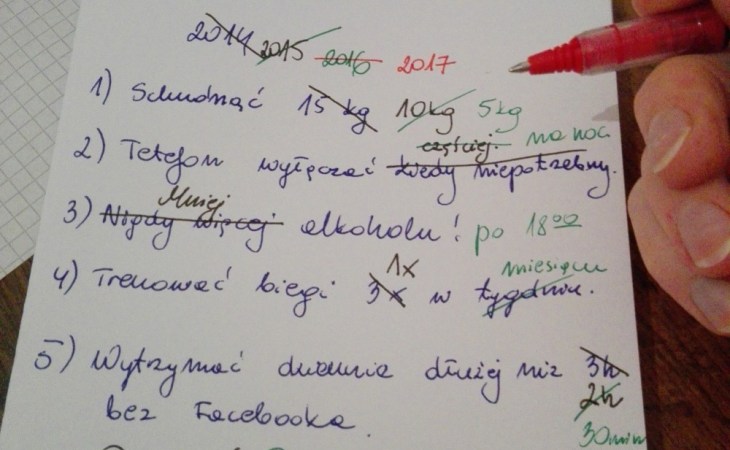 2014 2015 2016 2017
1) Schudnąć 15 kg 10kg 5kg
częściej. na noc
2) Telefon wyłączać kiedy niepotrzebny.
Mniej
3) Nigdy więcej alkoholu! po 18⁰⁰
1x miesiącu
4) Trenować biegi 3x w tygodniu.
5) Wytrzymać dziennie dłużej niż 3h
2h
bez Facebooka.
30min